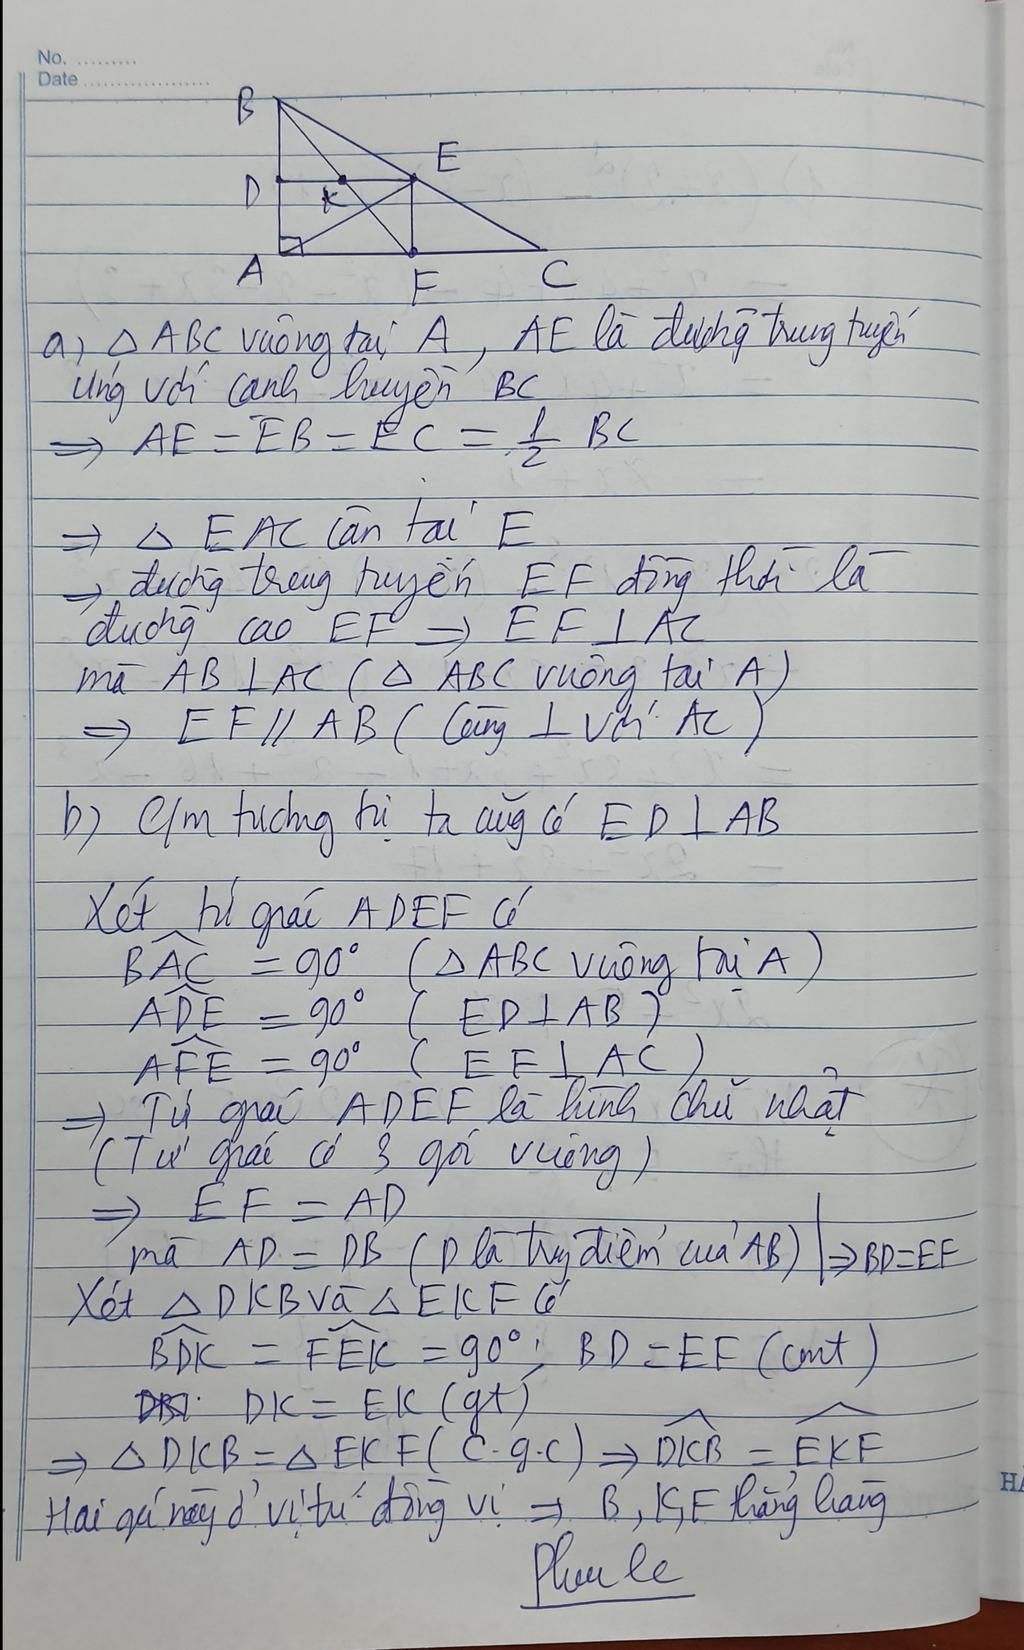 No. .........
Date ...................
B
E
D
K
A
F
C
a) △ ABC vuông tại A, AE là đường trung tuyến
ứng với cạnh huyền BC
⇒ AE = EB = EC = 1/2 BC
⇒ △ EAC cân tại E
⇒ đường trung tuyến EF đồng thời là
đường cao EF ⇒ EF ⊥ AC
mà AB ⊥ AC ( △ ABC vuông tại A)
⇒ EF // AB ( cùng ⊥ với AC )
b) C/m tương tự ta cũng có ED ⊥ AB
Xét tứ giác ADEF có
BAC = 90° ( △ ABC vuông tại A )
ADE = 90° ( ED ⊥ AB )
AFE = 90° ( EF ⊥ AC )
⇒ Tứ giác ADEF là hình chữ nhật
(Tứ giác có 3 góc vuông)
⇒ EF = AD
mà AD = DB ( D là trung điểm của AB) | ⇒ BD = EF
Xét △ DKB và △ EKF có
BDK = FEK = 90° ; BD = EF (cmt)
DK = EK (gt)
⇒ △ DKB = △ EKF ( c.g.c) ⇒ DKB = EKF
Hai góc này ở vị trí đồng vị ⇒ B, K, F thẳng hàng
HẢ